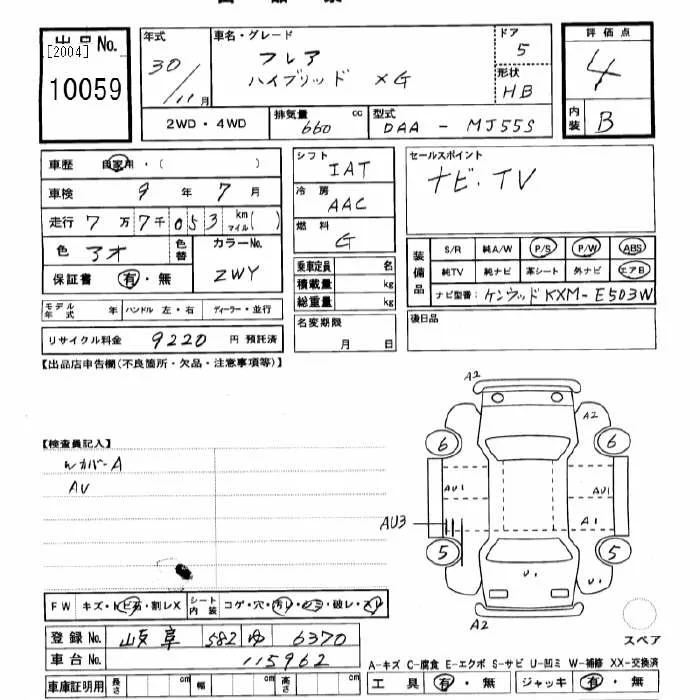 出品No. [2004] 10059
年式 30/11月
車名・グレード フレア ハイブリッド XG
ドア 5
形状 HB
評価点 4
内装 B
2WD・4WD
排気量 660 cc
型式 DAA - MJ55S
車歴 自家用・( )
車検 9年 7月
走行 7万7千053 km マイル( )
色 アオ 色替
カラーNo. ZWY
保証書 有・無
モデル年式 年 ハンドル 左・右 ディーラー・並行
リサイクル料金 9220 円 預託済
シフト IAT
冷房 AAC
燃料 G
乗車定員 名
積載量 kg
総重量 kg
名変期限 月 日
セールスポイント
ナビ・TV
装備品 S/R 純A/W P/S P/W ABS
純TV 純ナビ 革シート 外ナビ エアB
ナビ型番: ケンウッド KXM-E503W
後日品
【出品店申告欄(不良箇所・欠品・注意事項等)】
【検査員記入】
Wカバー A
AU
A2
A2
6
6
AU1
AU1
AU3
A1
5
5
U1
A2
スペア
FW キズ・トビ石・割レX シート内装 コゲ・穴・汚レ・シミ・破レ・スレ
登録No. 岐阜 582 ゆ 6370
車台No. 115962
車庫証明用 長さ cm 幅 cm 高さ cm
A-キズ C-腐食 E-エクボ S-サビ U-凹ミ W-補修 XX-交換済
工具 有・無 ジャッキ 有・無